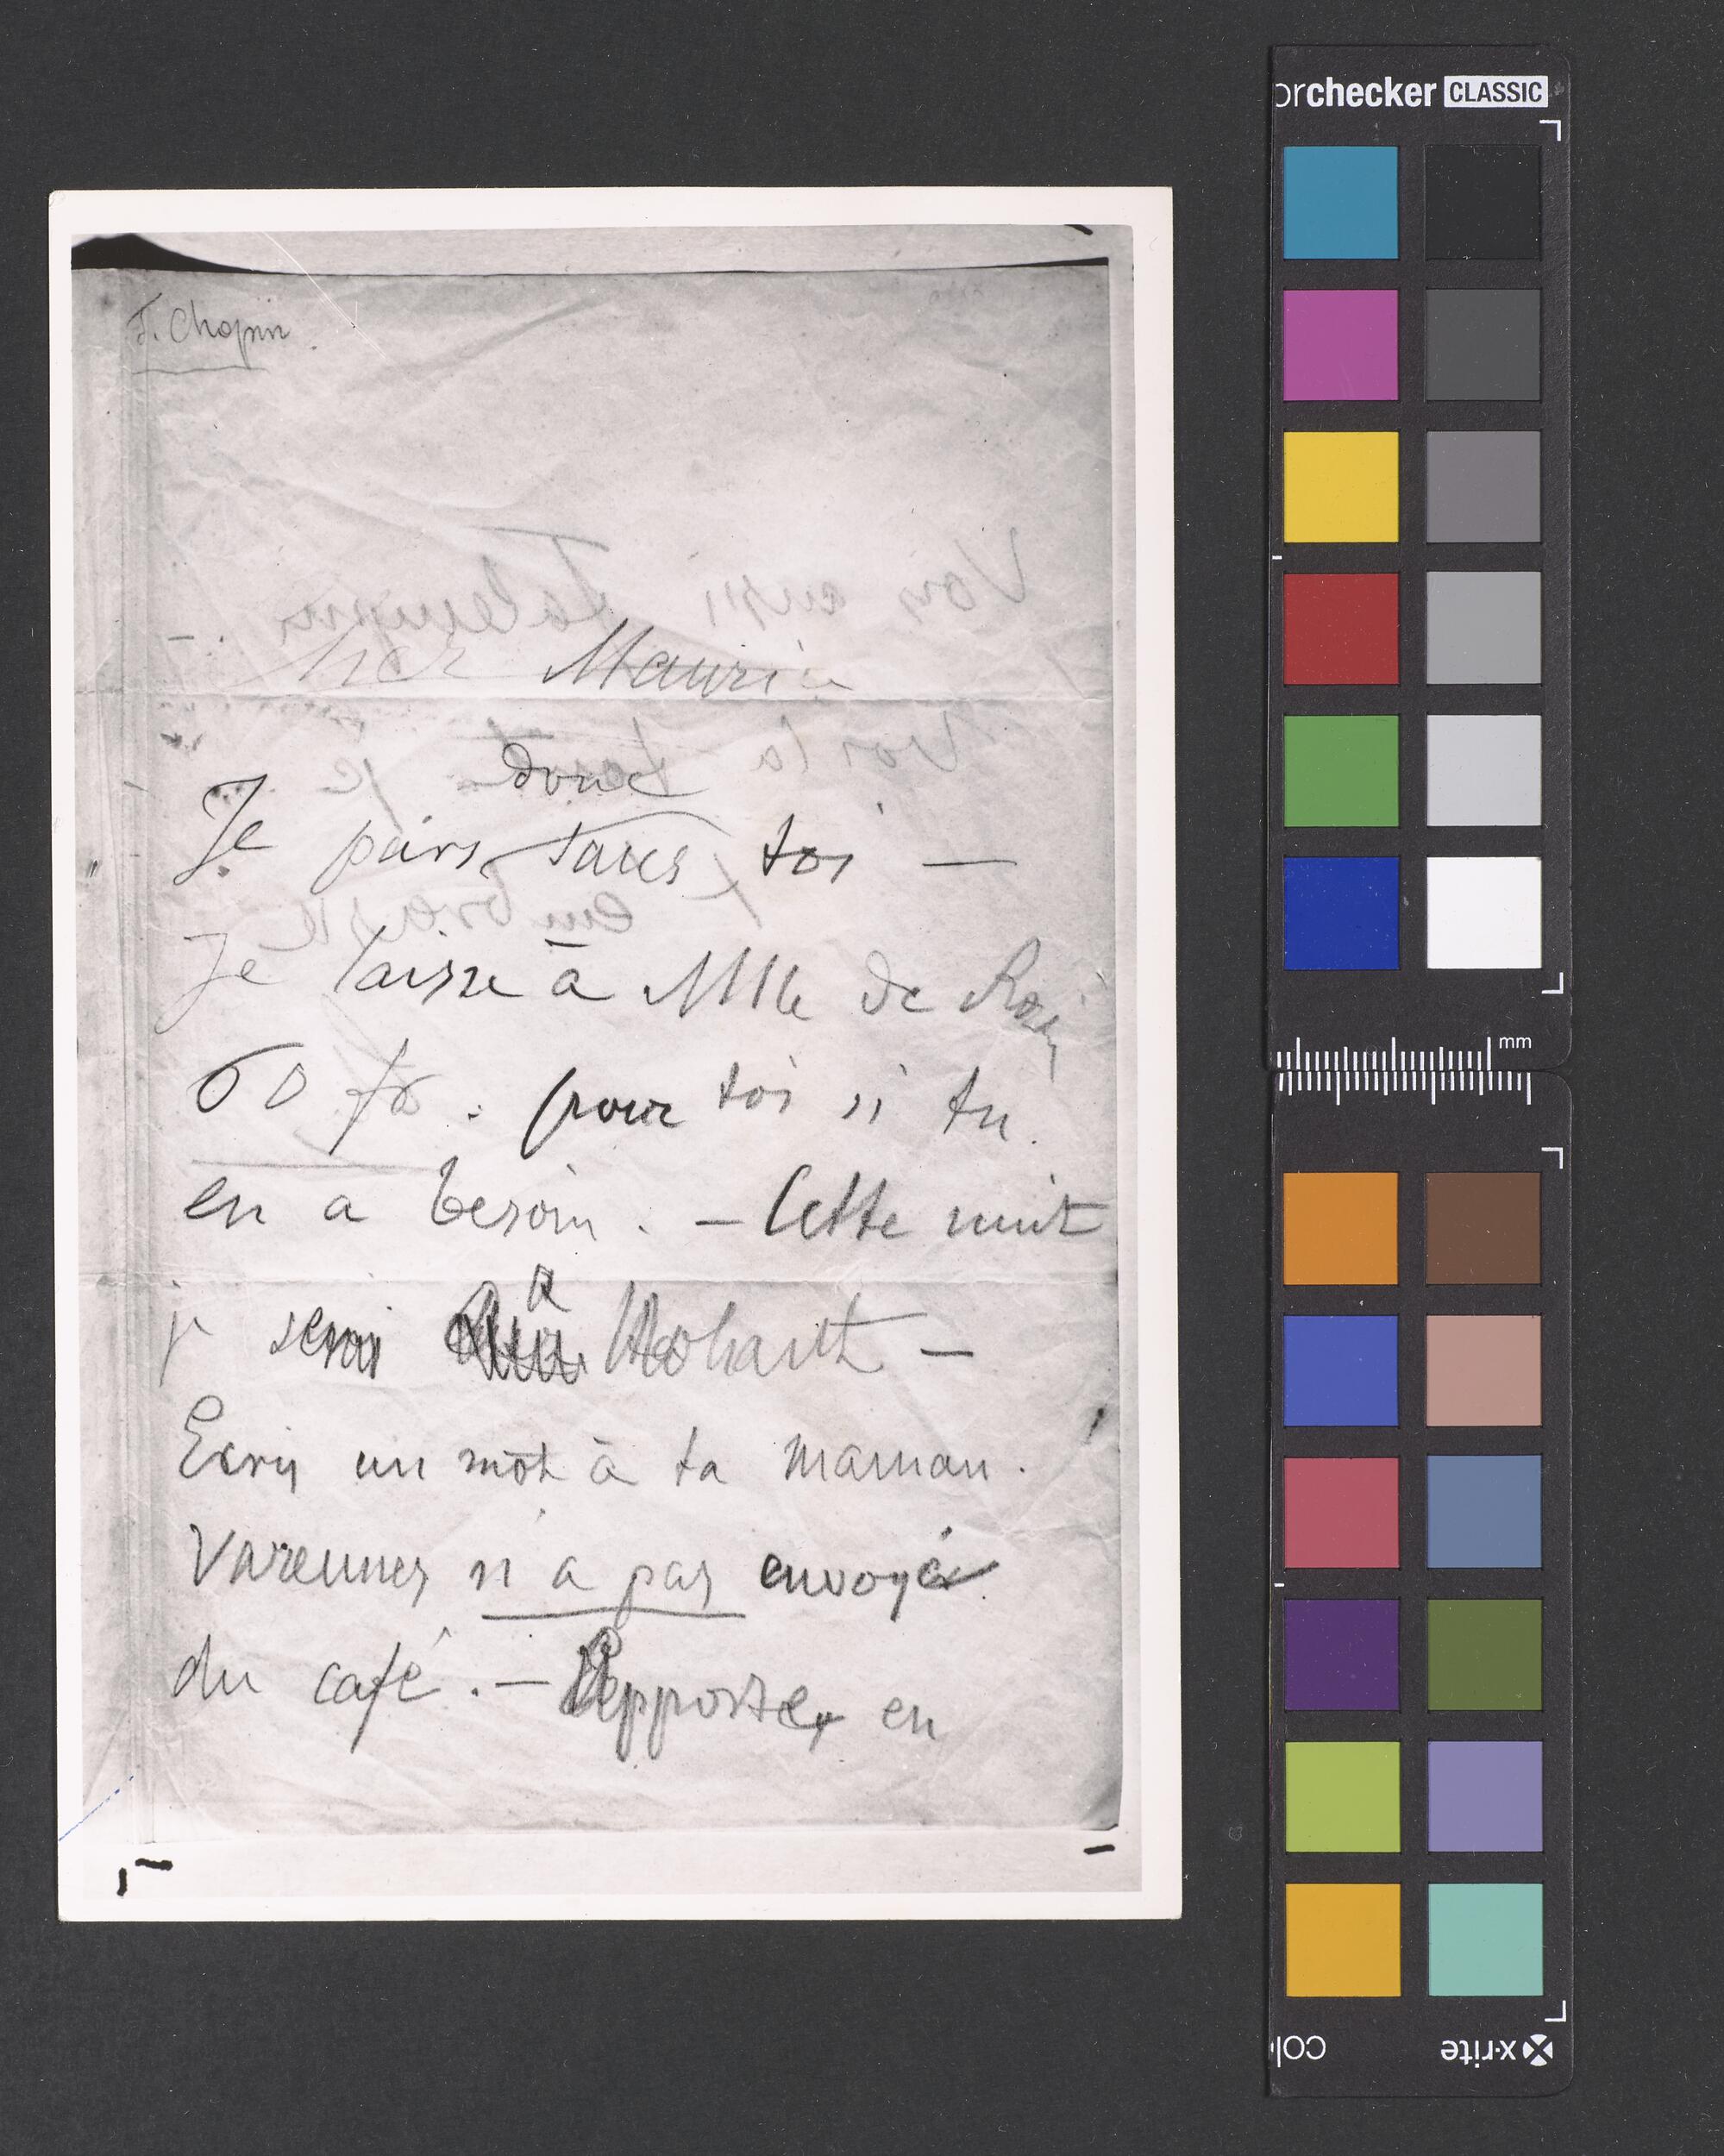 F. Chopin.
Cher Maurice
donc
Je pars sans toi —
Je laisse à Mlle de Rozi
60 fr. pour toi si tu
en a besoin. — Cette nuit
je serai à Nohant —
Ecris un mot à ta maman.
Varennes n'a pas envoyé
du café. — Apportes en
Vois aussi
Voila je
embrasse
orchecker CLASSIC
mm
x-rite
col